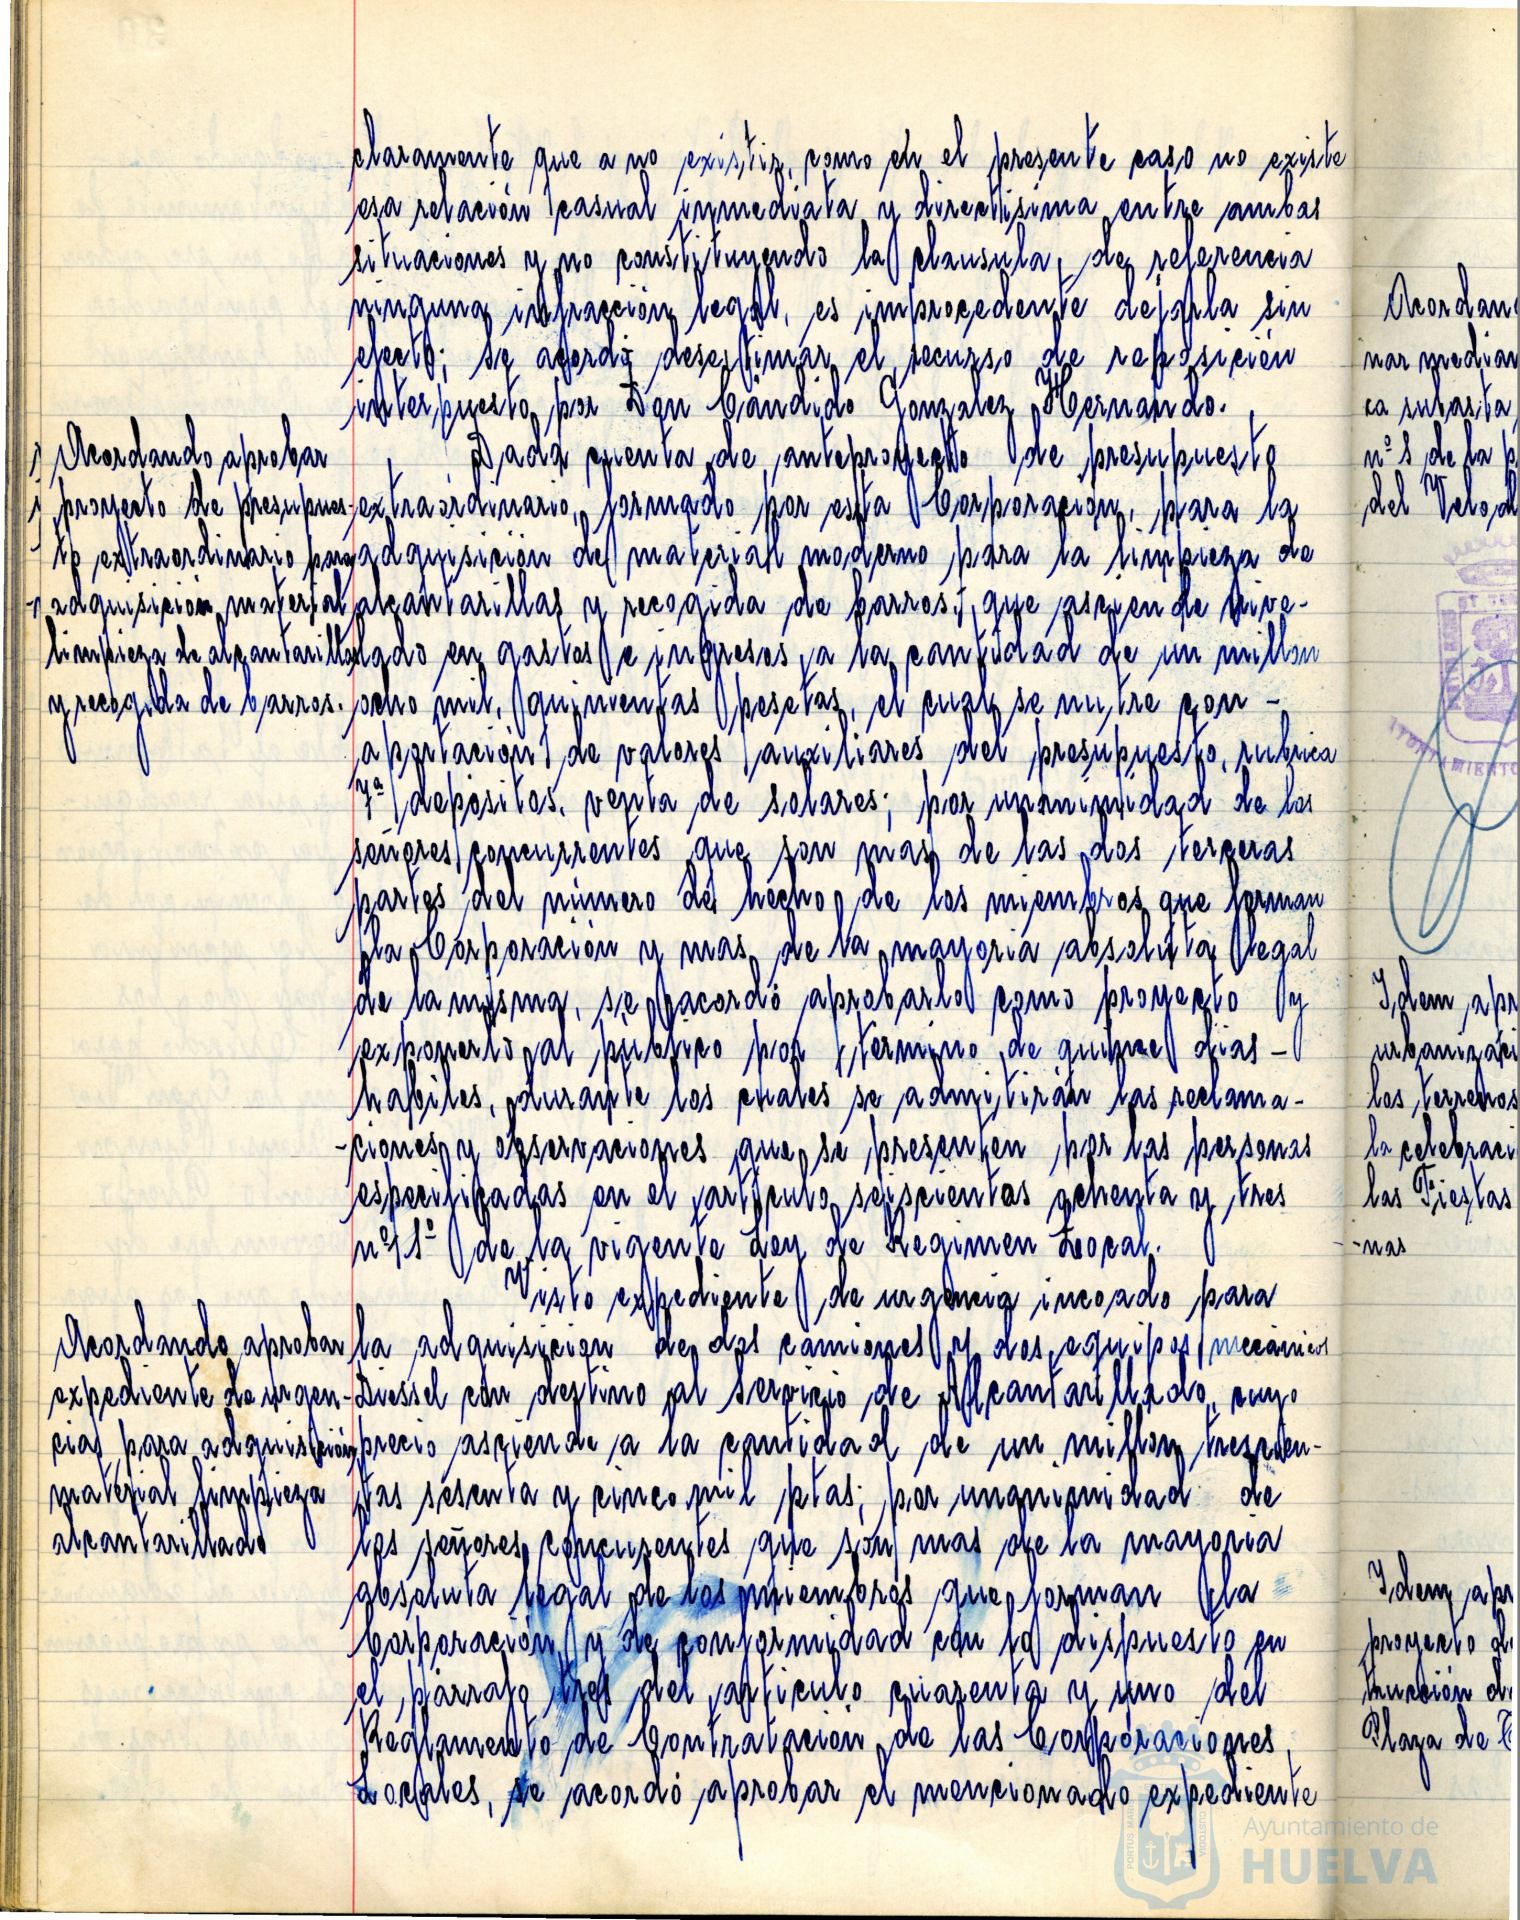 claramente que a no existir, como en el presente caso no existe
esa relación casual inmediata y directisima entre ambas
situaciones y no constituyendo la clausula, de referencia
ninguna infracción legal, es improcedente dejarla sin
efecto; se acordó desestimar el recurso de reposición
interpuesto por Don Cándido Gonzalez Hernando.
Acordando aprobar
proyecto de presupues-
to extraordinario para
adquisición material
limpieza de alcantarillas
y recogida de barros.
Dada cuenta de anteproyecto de presupuesto
extraordinario, formado por esta Corporación, para la
adquisición de material moderno para la limpieza de
alcantarillas y recogida de barros, que asciende nive-
lado en gastos e ingresos a la cantidad de un millon
ocho mil, quinientas pesetas, el cual se nutre con -
aportación de valores auxiliares del presupuesto, rubrica
7ª depositos, venta de solares; por unanimidad de los
señores concurrentes que son mas de las dos terceras
partes del número de hecho de los miembros que forman
la Corporación y mas de la mayoria absoluta legal
de la misma, se acordó aprobarlo como proyecto y
exponerlo al público por termino de quince dias -
habiles, durante los cuales se admitirán las reclama-
-ciones y observaciones que se presenten por las personas
especificadas en el articulo seiscientos ochenta y tres
nº 1º de la vigente Ley de Regimen Local.
Acordando aprobar
expediente de urgen-
cias para adquisición
material limpieza
alcantarillado
Visto expediente de urgencia incoado para
la adquisicion de dos camiones y dos equipos mecánicos
Diessel con destino al servicio de Alcantarillado, cuyo
precio asciende a la cantidad de un millon trescien-
tas sesenta y cinco mil ptas; por unanimidad de
los señores concurentes que son mas de la mayoria
absoluta legal de los miembros que forman la
Corporación y de conformidad con lo dispuesto en
el párrafo tres del articulo cuarenta y uno del
Reglamento de Contratación de las Corporaciones
Locales, se acordó aprobar el mencionado expediente
Acordan
nar median
ca subasta
nº 1 de la p
del Velod
Idem apr
urbanizaci
los terrenos
la celebraci
las Fiestas
-nas
Idem apr
proyecto d
trucción d
Plaza de T
Ayuntamiento de
HUELVA